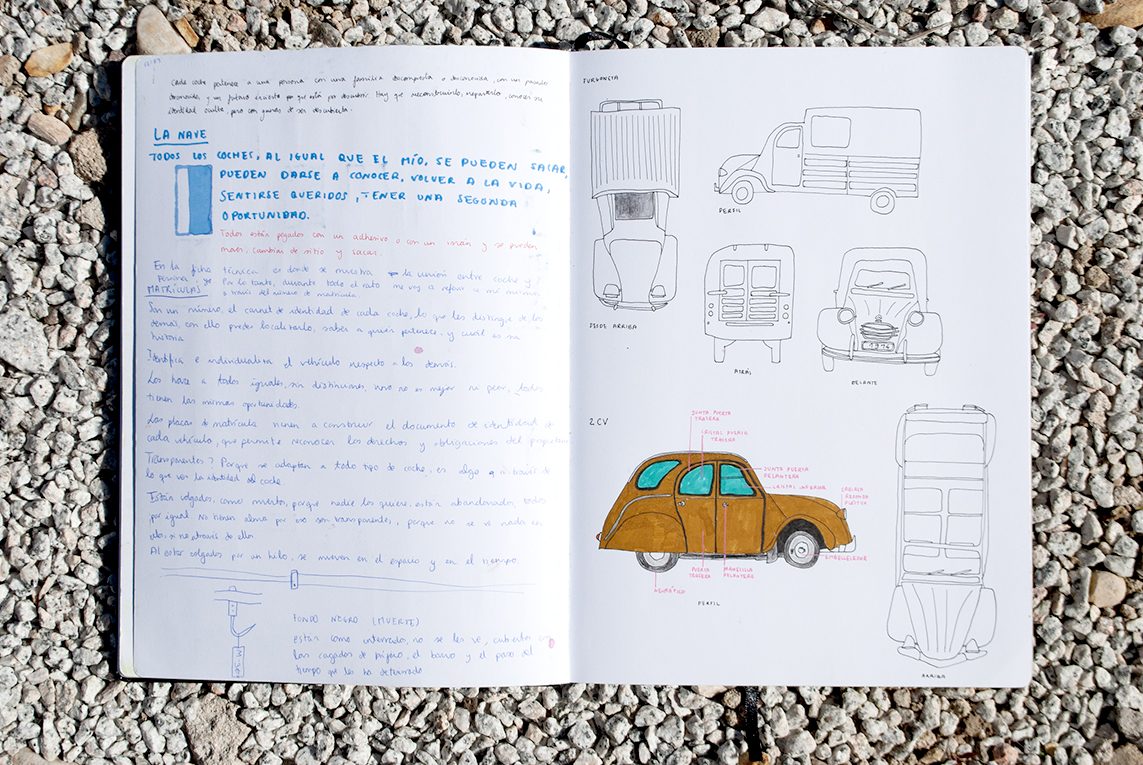 Cada coche pertenece a una persona con una familia descompuesta o desconocida, con un pasado
desconocido y un futuro incierto por que está por descubrir. Hay que reconstruirlo, repartirlo, conocer su
identidad oculta, pero con ganas de ser descubierta.
LA NAVE
TODOS LOS COCHES, AL IGUAL QUE EL MÍO, SE PUEDEN SACAR,
PUEDEN DARSE A CONOCER, VOLVER A LA VIDA,
SENTIRSE QUERIDOS, TENER UNA SEGUNDA
OPORTUNIDAD.
Todos están pegados con un adhesivo o con un imán y se pueden
mover, cambiar de sitio y sacar.
En la ficha técnica es donde se muestra la unión entre coche y
persona, Por lo tanto, durante todo el rato me voy a referir a
a través del número de matrícula.
MATRÍCULAS
Son un número, el carnet de identidad de cada coche, lo que les distingue de los
demás, con ello puedes localizarlo, saber a quién pertenece, y cuál es su
historia
Identifica e individualiza el vehículo respecto a los demás.
Los hace a todos iguales, sin distinciones, uno no es mejor ni peor, todos
tienen las mismas oportunidades.
Las placas de matrícula vienen a construir el documento de identidad de
cada vehículo, que permite reconocer los derechos y obligaciones del propietario
Transparentes? Porque se adaptan a todo tipo de coche, es algo a través de
lo que ves la identidad del coche.
Están colgados, como muertos, porque nadie los quiere, están abandonados, todos
por igual no tienen alma por eso son transparentes, porque no se ve nada en
ellos, si no a través de ellos.
Al estar colgados por un hilo, se mueven en el espacio y en el tiempo.
FONDO NEGRO (MUERTE)
están como enterrados, no se les ve, cubiertos en
las cagadas de pájaro, el barro y el paso del
tiempo que les ha deteriorado
FURGONETA
PERFIL
DESDE ARRIBA
ATRÁS
DELANTE
2CV
JUNTA PUERTA
TRASERA
CRISTAL PUERTA
TRASERA
JUNTA PUERTA
DELANTERA
CRISTAL INFERIOR
REDONDA
EMBELLECEDOR
PUERTA
TRASERA
MANECILLA
DELANTERA
NEUMÁTICO
PERFIL
ARRIBA